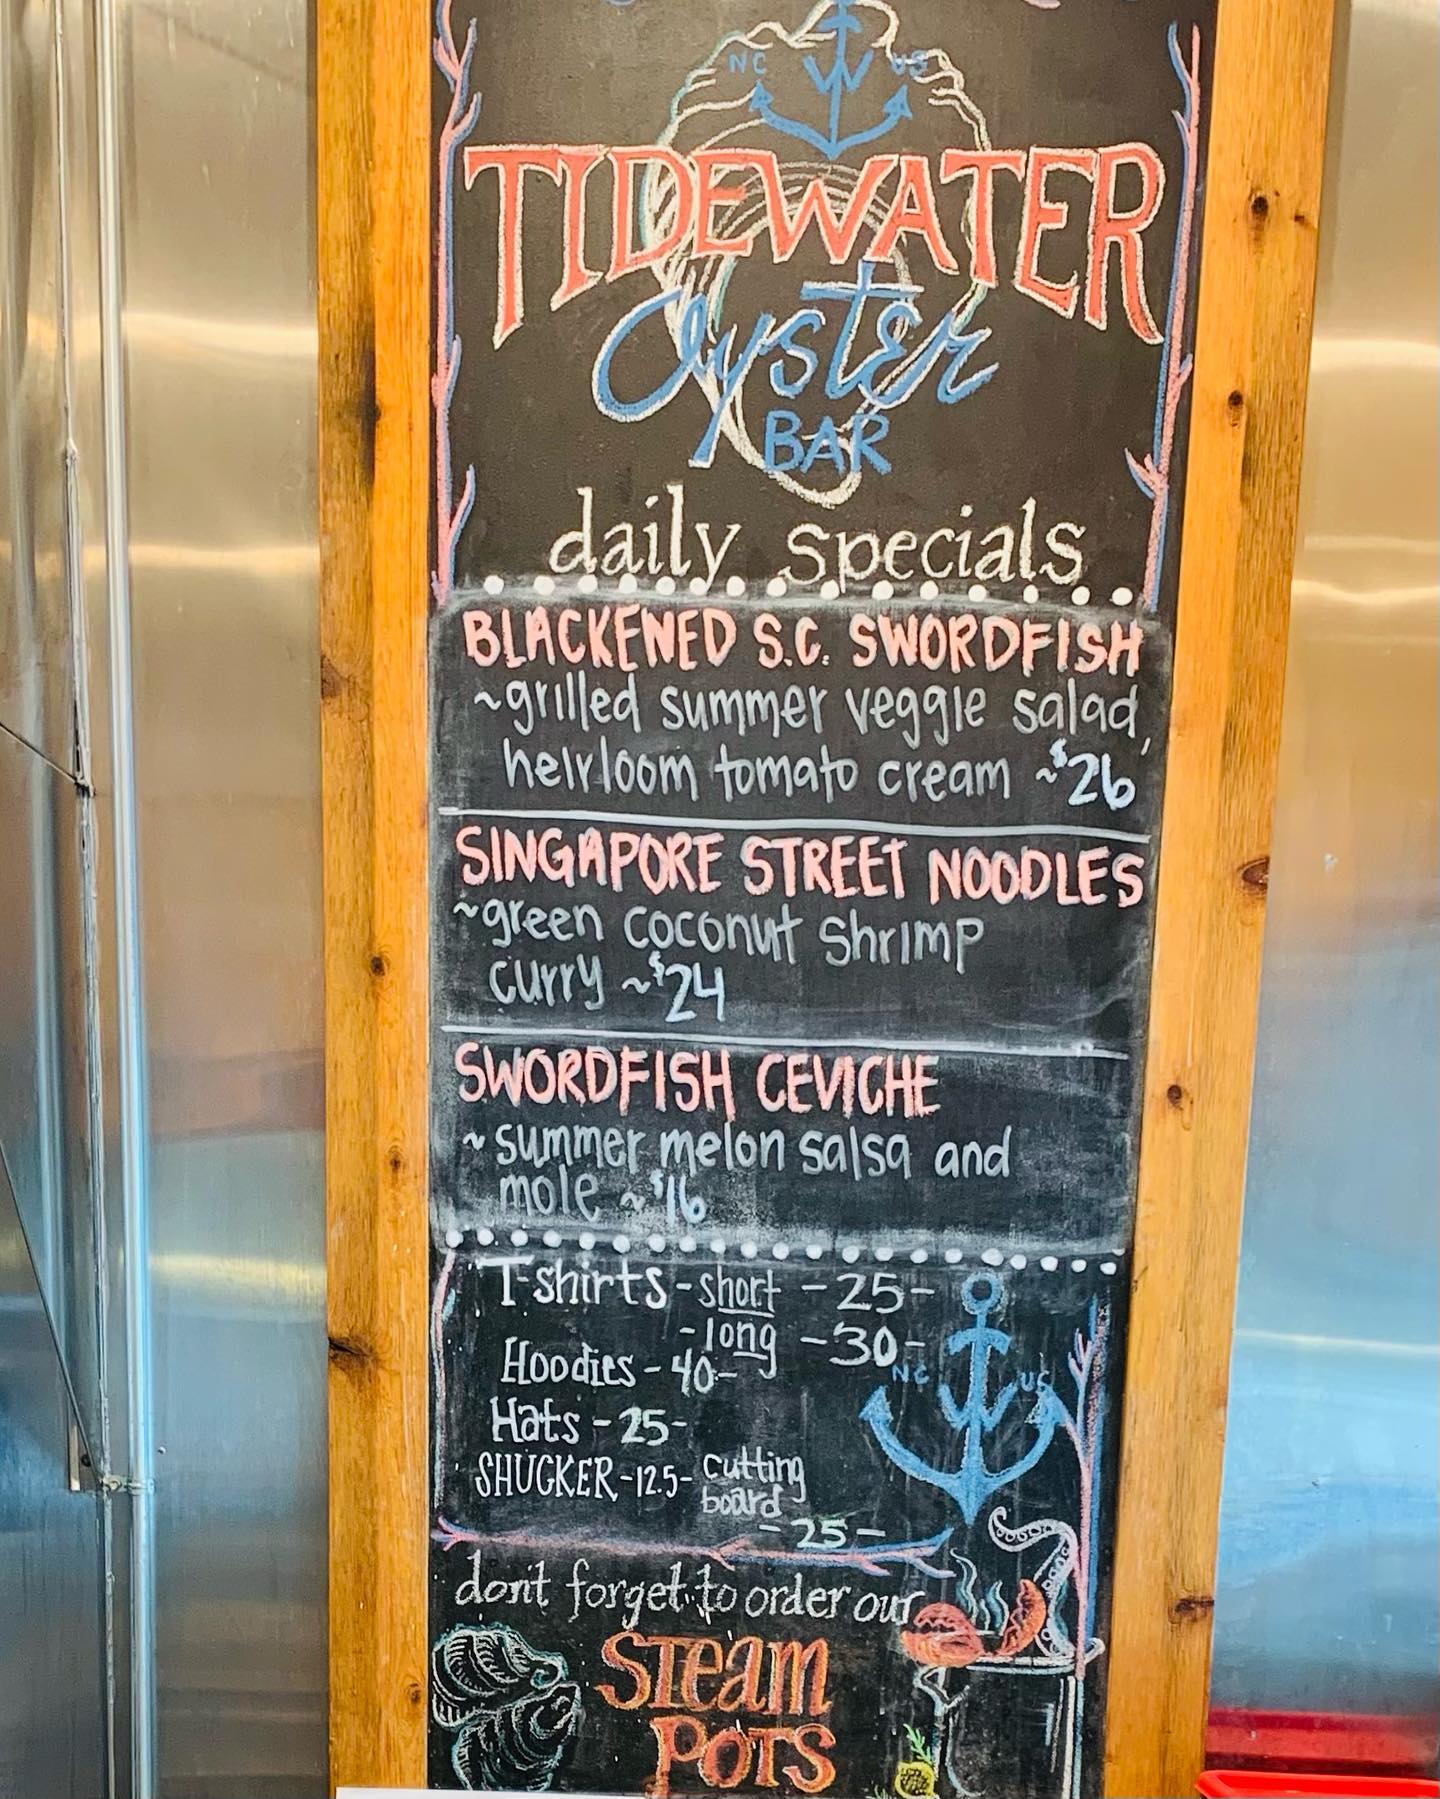 NC W US
TIDEWATER
Oyster
BAR
daily specials
BLACKENED S.C. SWORDFISH
~grilled summer veggie salad,
heirloom tomato cream ~$26
SINGAPORE STREET NOODLES
~green coconut shrimp
curry ~$24
SWORDFISH CEVICHE
~summer melon salsa and
mole ~$16
T-shirts - short - 25 -
- long - 30 -
Hoodies - 40 -
NC W US
Hats - 25 -
SHUCKER - 12.5 - cutting
board
- 25 -
don't forget to order our
STEAM
POTS